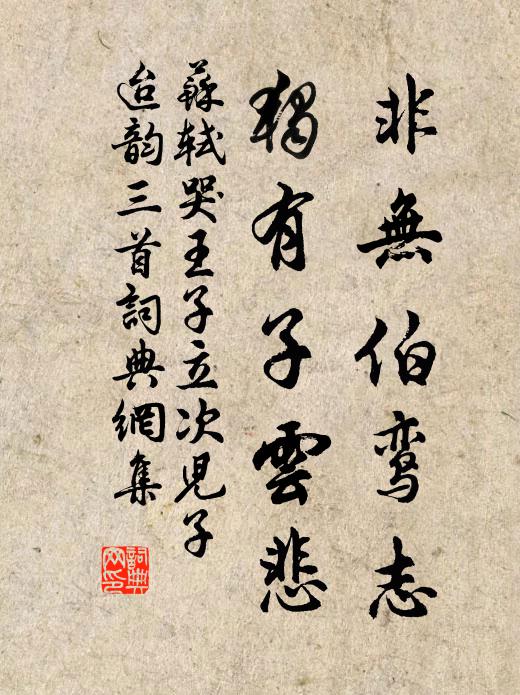 非無伯鸾志
獨有子雲悲
蘇軾哭王子立次兒子
迨韵三首詞典網集
詞典網印